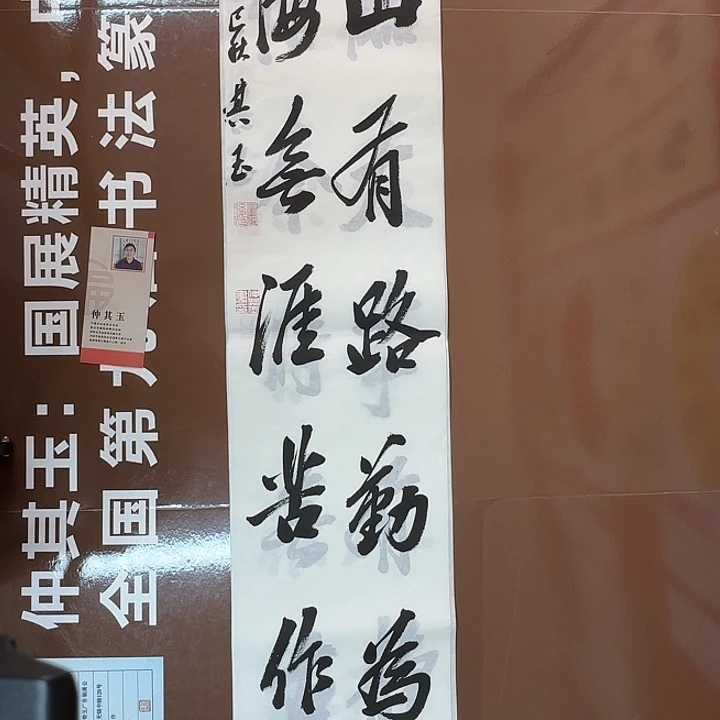 山有路勤為
海無涯苦作
巳秋其玉
仲其玉：国展精英，
全国第九届书法篆
仲其玉